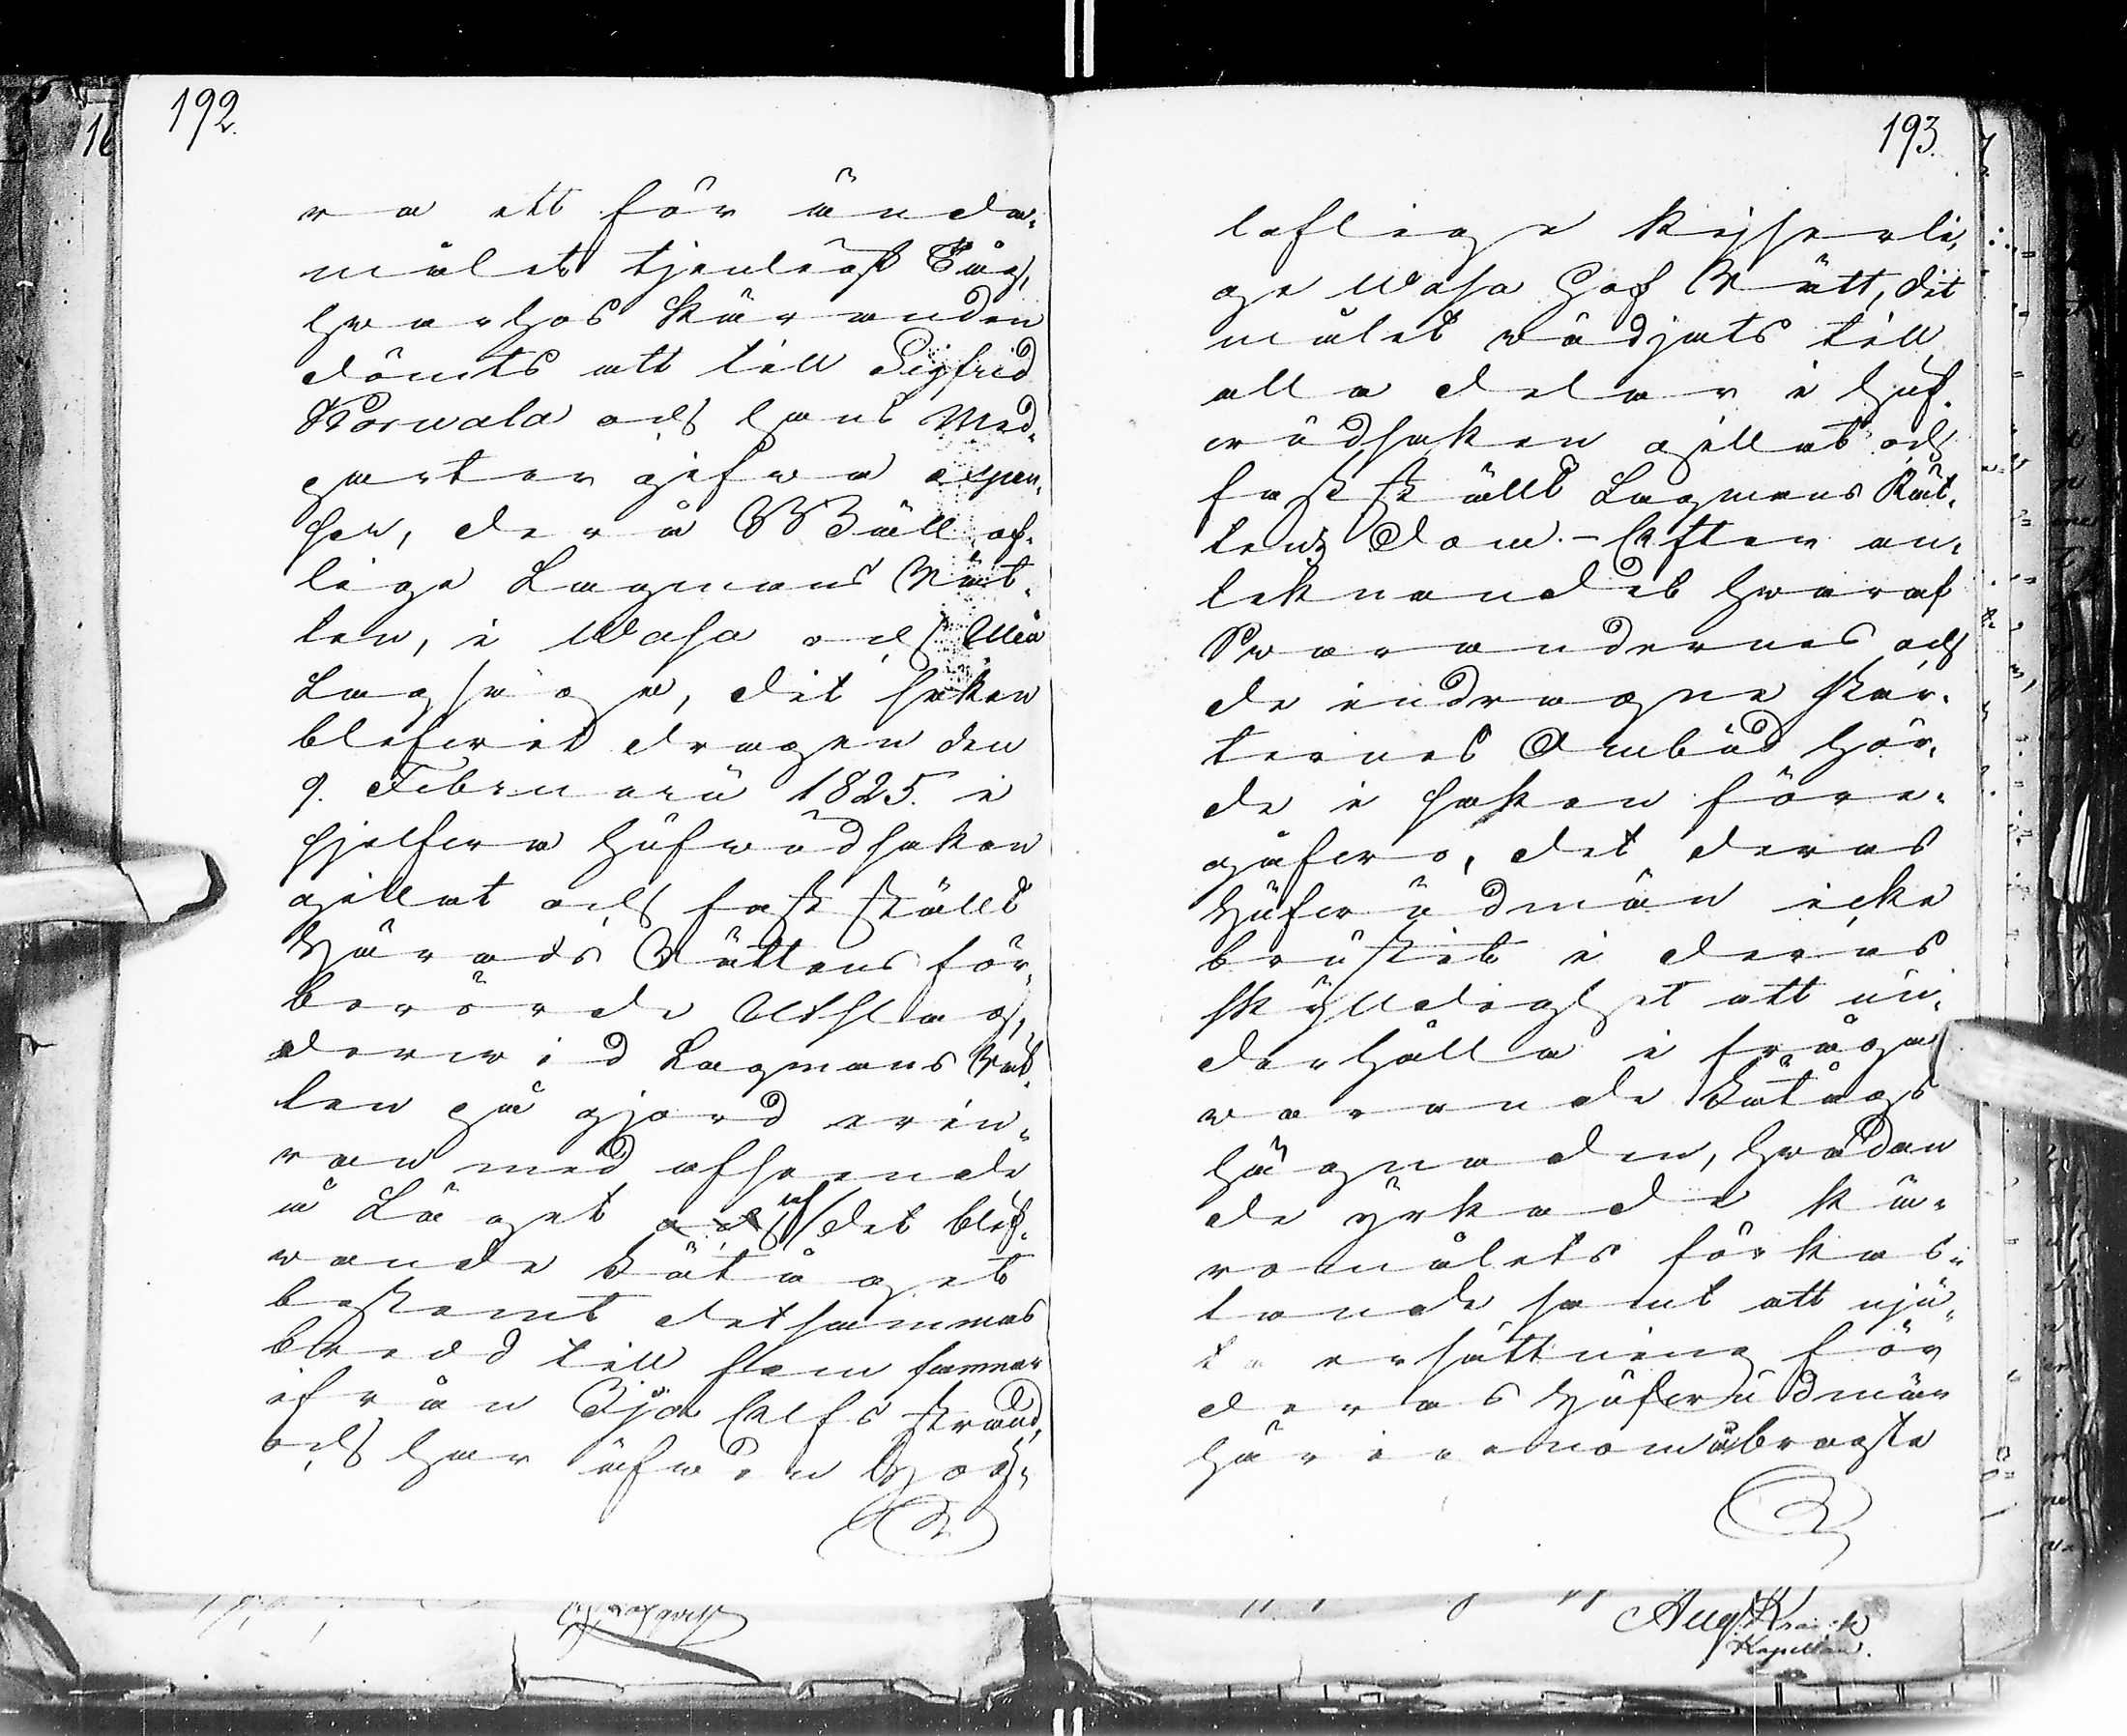 192.
ra ett för ända-
målet tjenligt Tåg,
hvarhos Käranden
dömts att till Sigfrid
Korwala och hans Med-
parter gifwa expen-
ser, dera Wällof-
lige Lagmans Rät-
ten, i Wasa och Uleå
Lagsaga, dit saken
blefwit dragen den
9. Februarii 1825. i
sjelfwa hufwudsaken
gillat och fastställt
Härads Rättens för-
berörde Utslag,
derwid Lagmans Rät-
ten på gjord erin-
ran med afseende
å Läget af det blif-
vande Fätåget
bestämt detsammas
bredd till fem famnar
ifrån Sjö Elfs strand,
och har äfwen Hög-
193.
loflige Kejserli-
ge Wasa Hof Rätt, dit
målet wädjats till
alla delar i huf-
wudsaken gillat och
fastställt Lagmans Rät-
tens Dom. - Efter an-
teknandet hwaraf
Swarandernes och
de indragne Par-
ternes Ombud hör-
de i saken före-
gåfwo, det deras
Hufwudmän icke
brustit i deras
skylldighet att un-
derhålla i fråga
warande Fätågs
hägnaden, hwadan
de yrkade kä-
romålets förkas-
tande samt att nju-
ta ersättning för
deras Hufwudmän
härigenom åbragte
Kapellan.